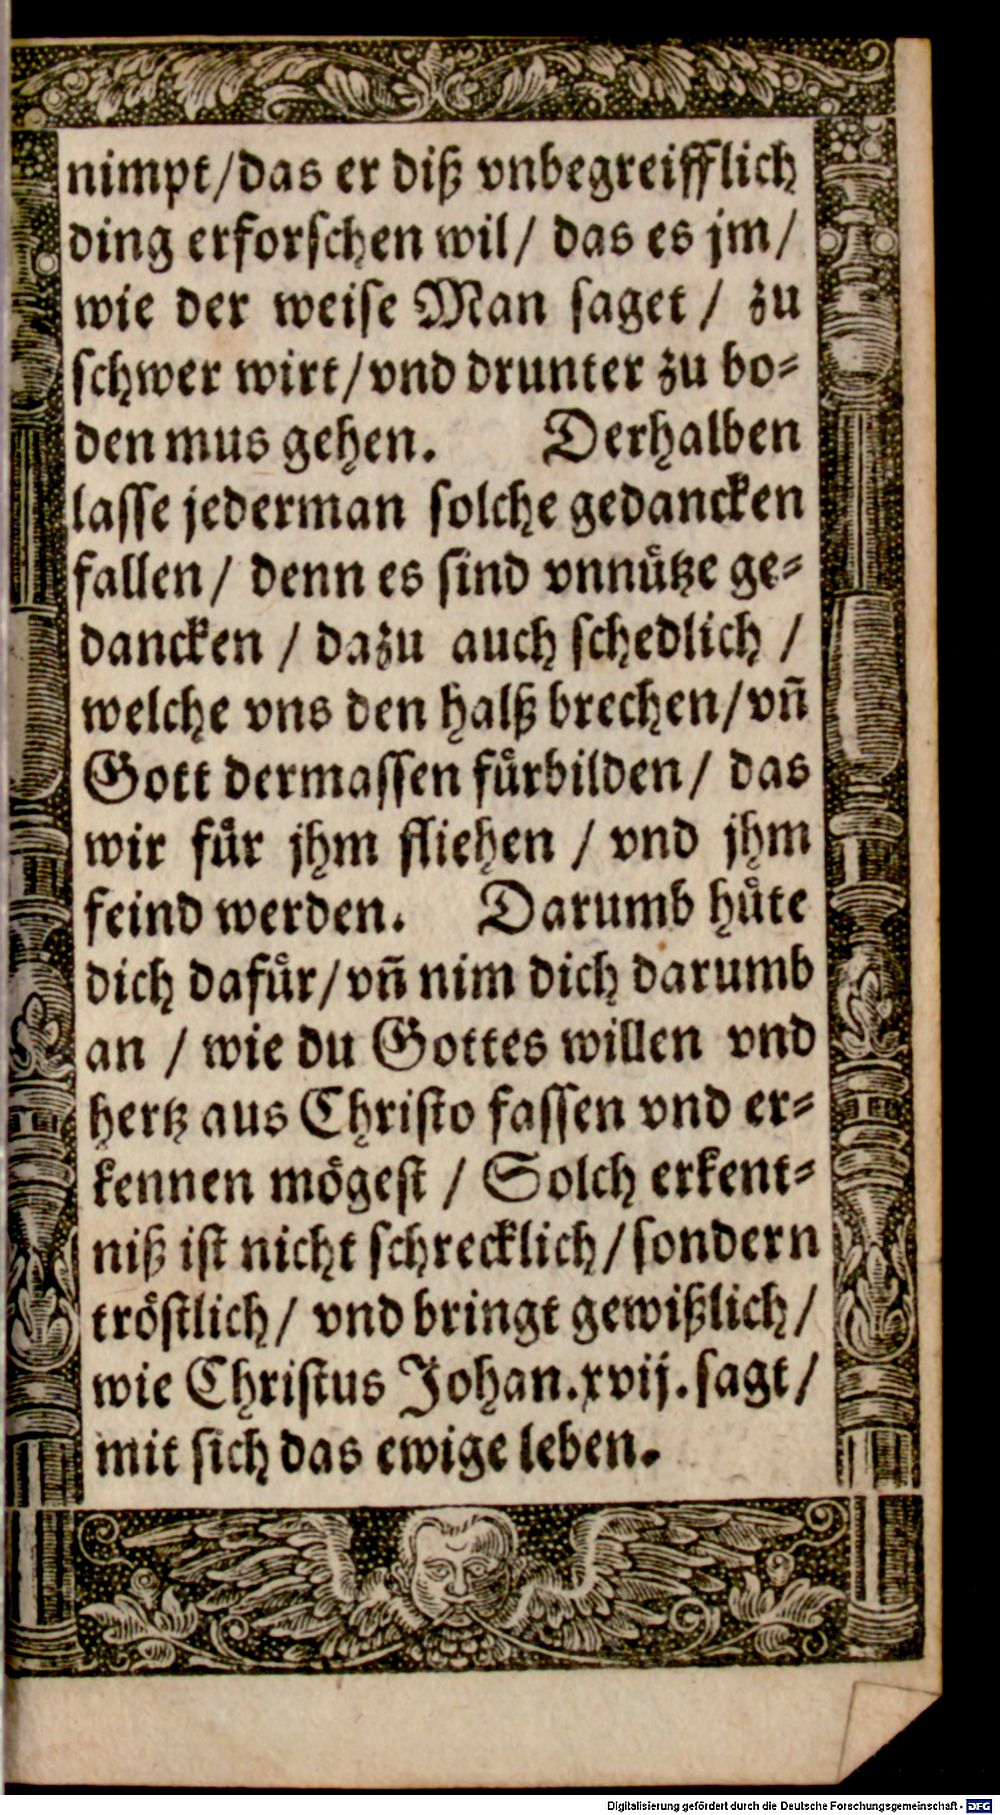 nimpt/das er diß vnbegreifflich
ding erforschen wil/ das es jm/
wie der weise Man saget / zu
schwer wirt/vnd drunter zu bo⸗
den mus gehen. Derhalben
lasse jederman solche gedancken
fallen/ denn es sind vnnuͤtze ge⸗
dancken / dazu auch schedlich /
welche vns den halß brechen/vñ
Gott dermassen fuͤrbilden/ das
wir fuͤr jhm fliehen / vnd jhm
feind werden. Darumb huͤte
dich dafuͤr/vñ nim dich darumb
an / wie du Gottes willen vnd
hertz aus Christo fassen vnd er⸗
kennen moͤgest / Solch erkent⸗
niß ist nicht schrecklich/sondern
troͤstlich/ vnd bringt gewißlich/
wie Christus Johan.xvij.sagt/
mit sich das ewige leben.
Digitalisierung gefördert durch die Deutsche Forschungsgemeinschaft - DFG